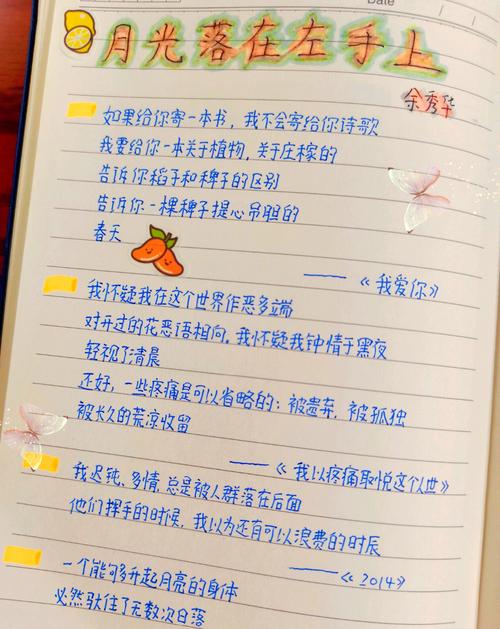 Date
月光落在左手上
余秀华
如果给你寄一本书，我不会寄给你诗歌
我要给你一本关于植物，关于庄稼的
告诉你稻子和稗子的区别
告诉你一棵稗子提心吊胆的
春天
——《我爱你》
我怀疑我在这个世界作恶多端
对开过的花恶语相向，我怀疑我钟情于黑夜
轻视了清晨
还好，一些疼痛是可以省略的：被遗弃，被孤独
被长久的荒凉收留
——《我以疼痛取悦这个人世》
我迟钝，多情，总是被人群落在后面
他们挥手的时候，我以为还有可以浪费的时辰
——《2014》
一个能够升起月亮的身体
必然驮住了无数次日落